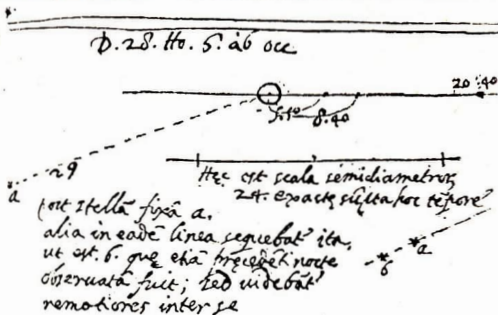 D. 28. Ho. 6. ab occ
20.40
5.10
8.40
29
a
Hęc est scala semidiametrorũ
24. exacte sũpta hoc tẽpore
post stellã fixã a,
alia in eadẽ linea sequebat' ita,
ut est .b. quę etiã pręcedẽti nocte
observata fuit; sed videbãt'
remotiores inter se
b a